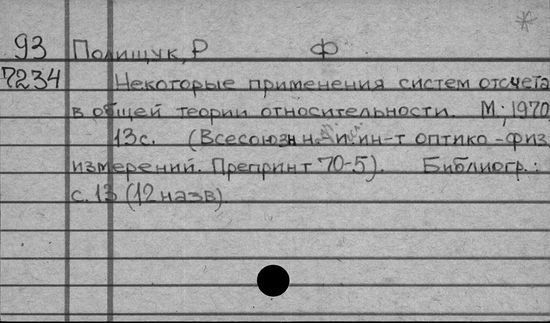 93 Полищук, Р Ф
7234 Некоторые применения систем отсчета
в общей теории относительности. М; 1970
13с. (Всесоюзн н.-и. ин-т оптико-физ
измерений. Препринт 70-5). Библиогр.:
с. 13 (12 назв)